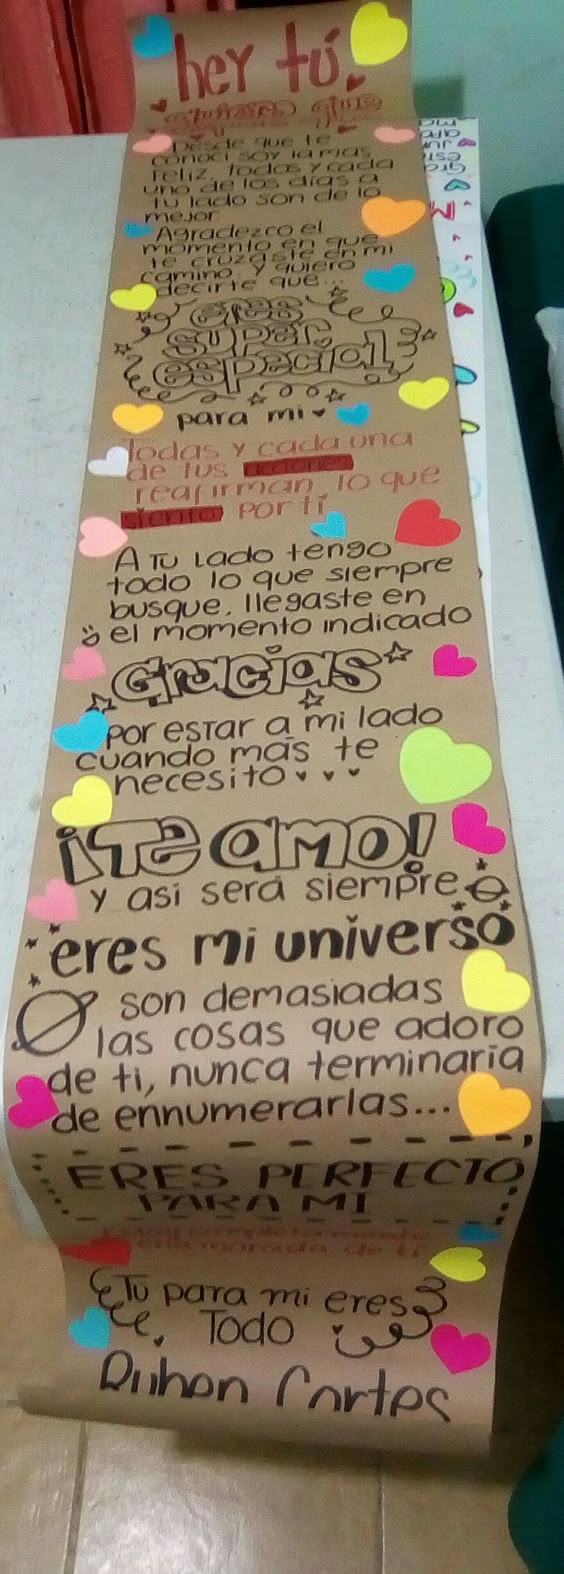 hey tú
Quiero que
Desde que te
conocí soy la mas
feliz, todos y cada
uno de los días a
tu lado son de lo
mejor
Agradezco el
momento en que
te cruzaste en mi
camino. Y quiero
decirte que...
eres
super
especial
para mi
Todas y cada una
de tus acciones
reafirman, lo que
siento por ti
A Tu lado tengo
todo lo que siempre
busque. llegaste en
el momento indicado
Gracias
Por estar a mi lado
cuando más te
necesito
¡Te amo!
y asi será siempre
eres mi universo
son demasiadas
las cosas que adoro
de ti, nunca terminaria
de ennumerarlas...
ERES PERFECTO
PARA MI
Estoy completamente
enamorada de ti
Tú para mi eres
Todo
Cortes